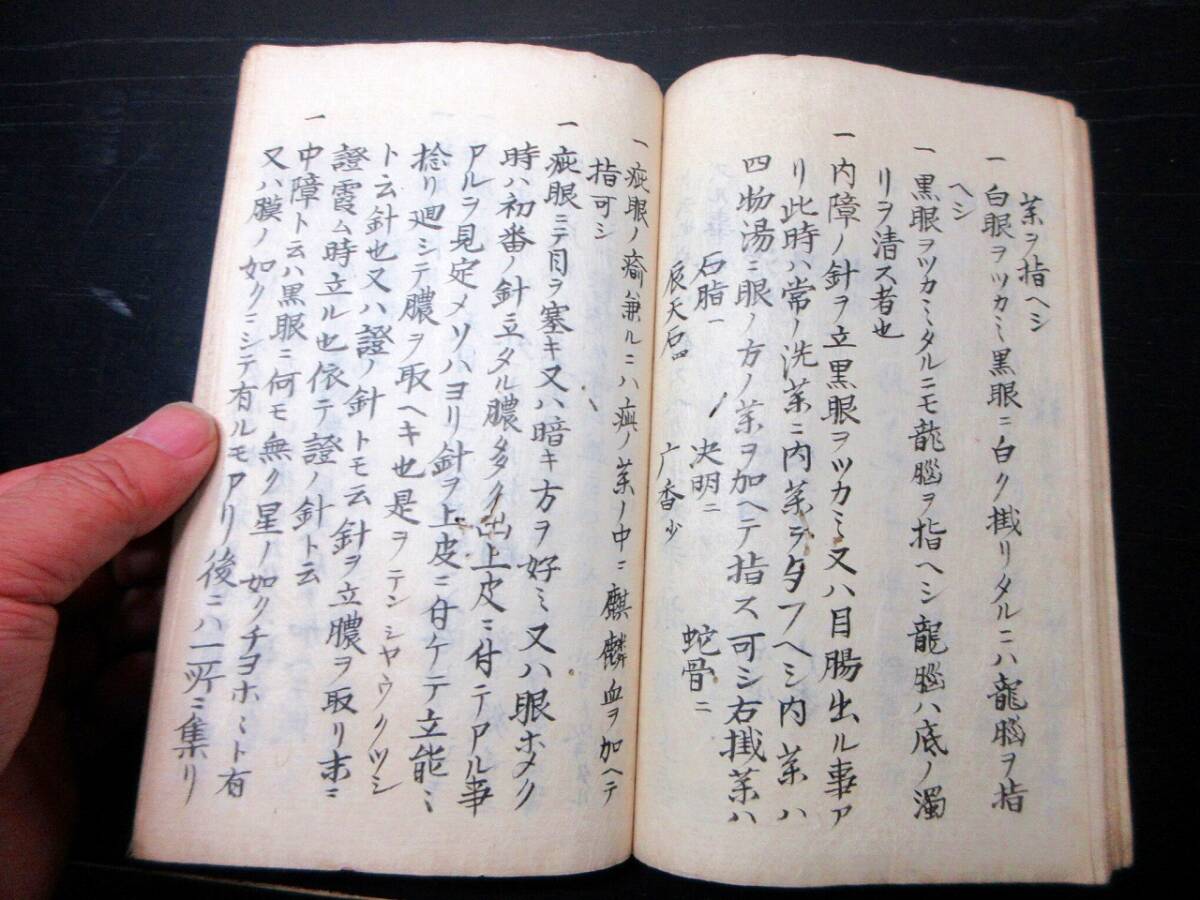 薬ヲ指ヘシ
一 白眼ヲツカミ黒眼ニ白ク掛リタルニハ龍脳ヲ指
ヘシ
一 黒眼ヲツカミタルニモ龍脳ヲ指ヘシ龍脳ハ底ノ濁
リヲ清ス者也
一 内障ノ針ヲ立黒眼ヲツカミ又ハ目腸出ル事ア
リ此時ハ常ノ洗薬ニ内薬ヲタフヘシ内薬ハ
四物湯ニ眼ノ方ノ薬ヲ加ヘテ指ス可シ右掛薬ハ
石脂一 決明二 蛇骨二
辰天石四 广香少
一 疵眼ノ瘉兼ルニハ ノ薬ノ中ニ麒麟血ヲ加ヘテ
指可シ
一 疵眼ニテ目ヲ塞キ又ハ暗キ方ヲ好ミ又ハ眼ホメク
時ハ初番ノ針ニ立タル膿多ク出上皮ニ付テアル事
アルヲ見定メソハヨリ針ヲ上皮ニ付ケテ立能ミ
捻リ廻シテ膿ヲ取ヘキ也是ヲテンシヤウクツシ
ト云針也又ハ證ノ針トモ云針ヲ立膿ヲ取リ末ニ
證霞ム時立ル也依テ證ノ針ト云
一 中障ト云ハ黒眼ニ何モ無ク星ノ如クチヨホミト有
又ハ膜ノ如クニシテ有ルモアリ後ニハ一所ニ集リ